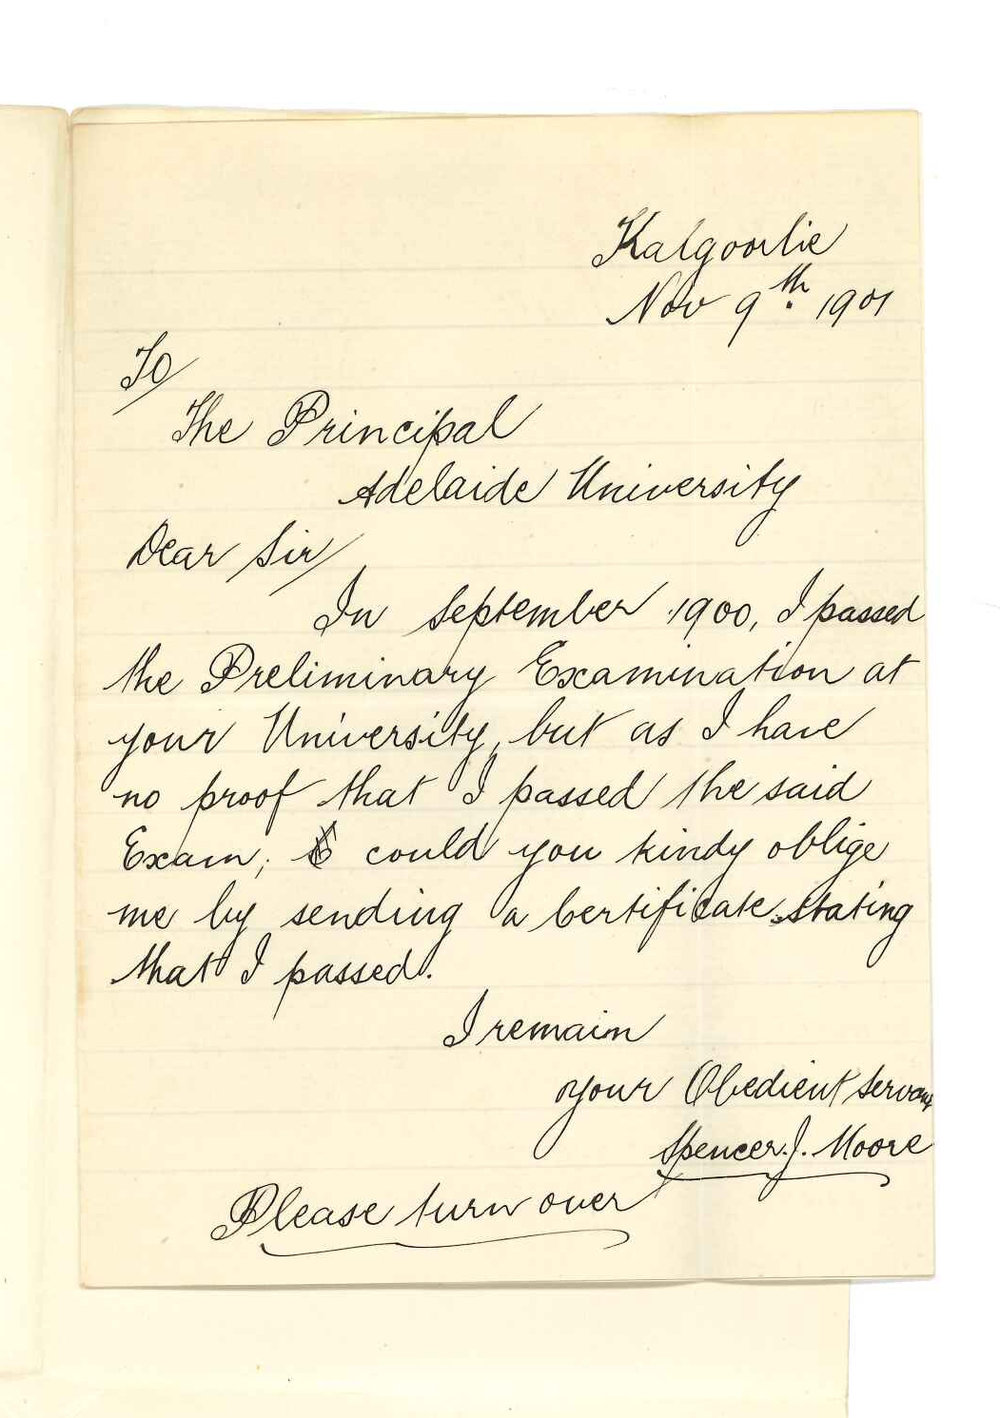 Kalgoorlie
Nov 9th. 1901
To/
The Principal
Adelaide University
Dear Sir/
In September 1900, I passed
the Preliminary Examination at
your University, but as I have
no proof that I passed the said
Exam; could you kindy oblige
me by sending a Certificate stating
that I passed.
I remain
your Obedient Servant
Spencer. J. Moore
Please turn over